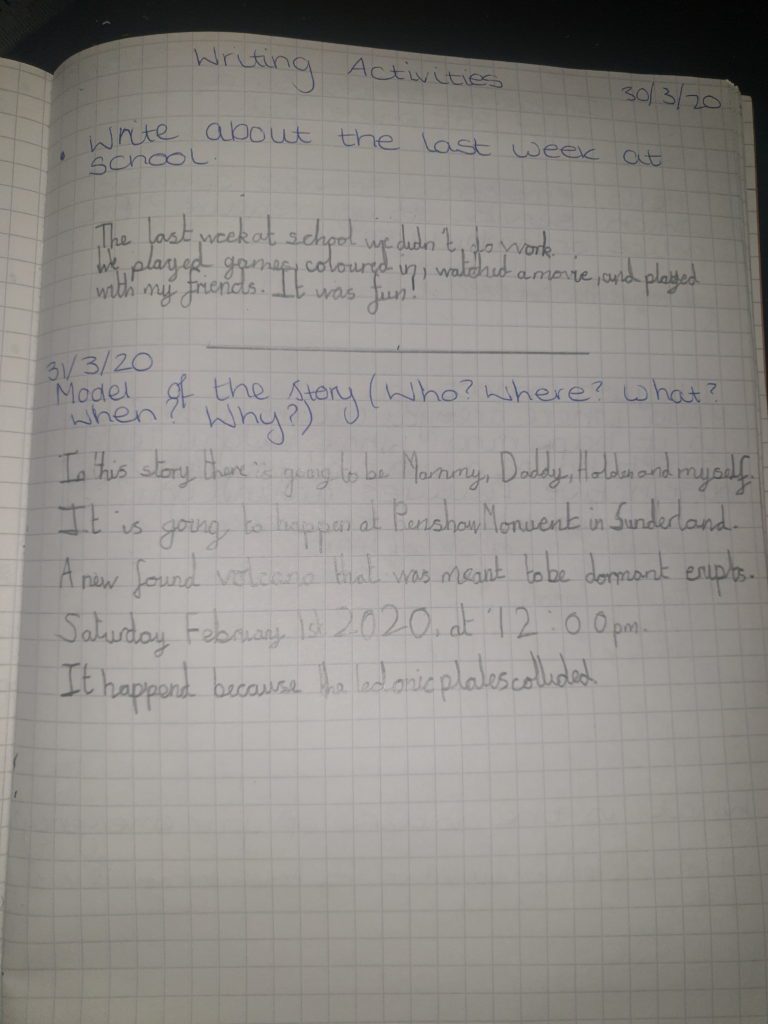 Writing Activities
30/3/20
• Write about the last week at
school.
The last week at school we didn't do work.
We played games, coloured in, watched a movie, and played
with my friends. It was fun!
31/3/20
Model of the story (Who? Where? What?
When? Why?)
In this story there is going to be Mammy, Daddy, Holden and myself.
It is going to happen at Penshaw Monuent in Sunderland.
A new found volcano that was meant to be dormant erupts.
Saturday February 1st 2020, at 12:00pm.
It happend because the tectonic plates collided.